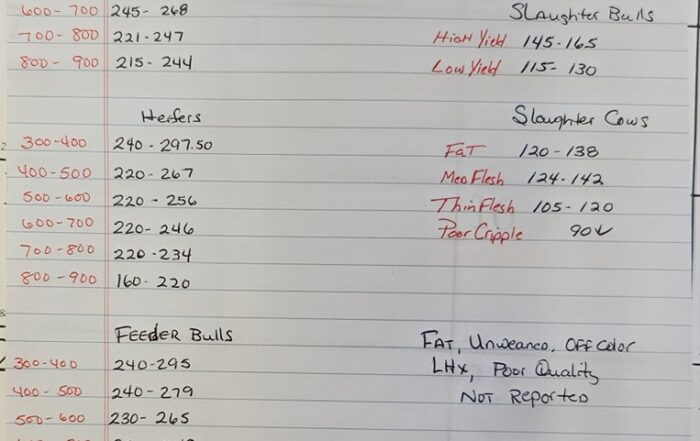 600-700 245-268
700-800 221-247
800-900 215-244
Heifers
300-400 240-297.50
400-500 220-267
500-600 220-256
600-700 220-246
700-800 220-234
800-900 160-220
FEEDER Bulls
300-400 240-295
400-500 240-279
500-600 230-265
Slaughter Bulls
High Yield 145-165
Low Yield 115-130
Slaughter Cows
FaT 120-138
Med Flesh 124-142
Thin Flesh 105-120
Poor Cripple 90↓
FAT, Unweaned, Off Color
LHX, Poor Quality
NOT Reported